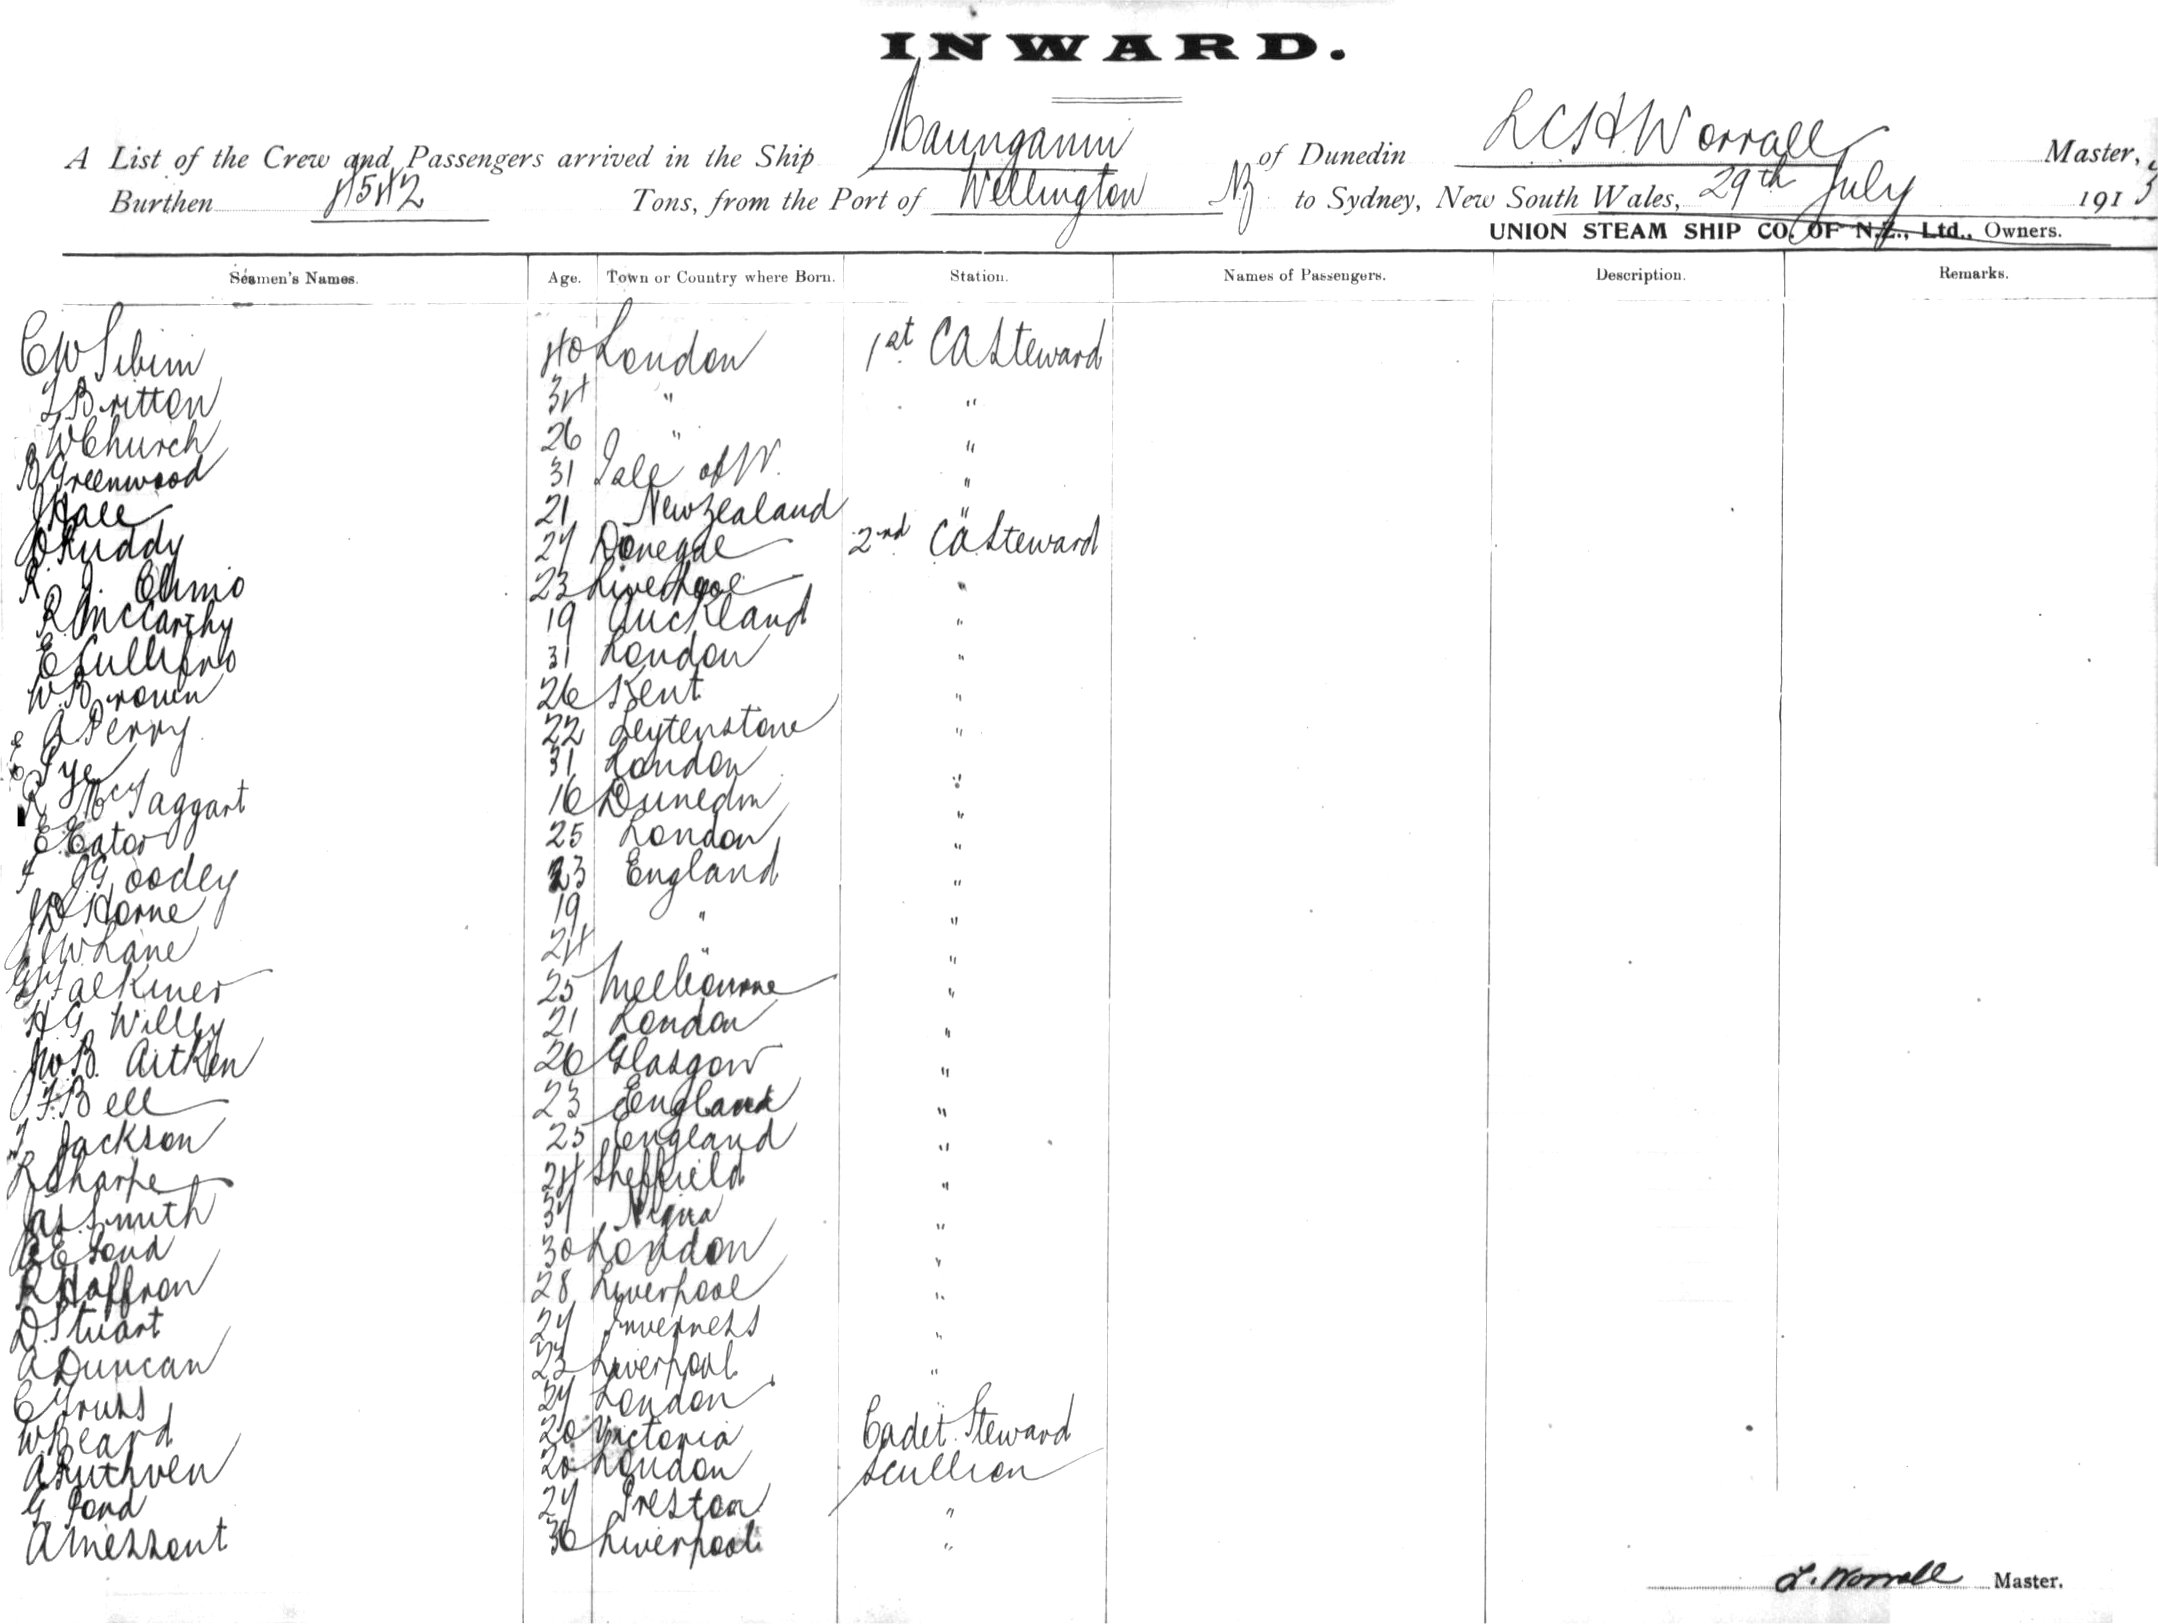 INWARD.
A List of the Crew and Passengers arrived in the Ship Maunganui of Dunedin L C H Worrall Master,
Burthen 4542 Tons, from the Port of Wellington NZ to Sydney, New South Wales, 29th July 1913
UNION STEAM SHIP CO. OF N.Z., Ltd., Owners.
Seamen's Names. Age. Town or Country where Born. Station. Names of Passengers. Description. Remarks.
C W 40 London 1st CA Steward
Britton 34 " "
W Church 26 " "
Greenwood 31 Isle of W. "
J Hall 21 New Zealand "
Ruddy 27 Donegal 2nd CA Steward
R 23 Liverpool "
R McCarthy 19 Auckland "
E 31 London "
W. Brown 26 Kent "
E A Perry 22 Leytenstone "
Tye 31 London "
R McTaggart 16 Dunedin "
E Eator 25 London "
F J Goodey 23 England "
J D Horne 19 " "
J W Lane 24 " "
Falkiner 25 Melbourne "
H G Willey 21 London "
J W B. Aitken 26 Glasgow "
J F. Bell 23 England "
T Jackson 25 England "
R Sharpe 24 Sheffield "
Jas Smith 37 "
30 London "
R Haffron 28 Liverpool "
D. Stuart 27 Inverness "
A Duncan 23 Liverpool "
C 27 London "
W. Beard 20 Victoria Cadet Steward
A Ruthven 20 London Scullion
G Pond 27 Preston "
A Messent 30 Liverpool "
L. Worrall Master.